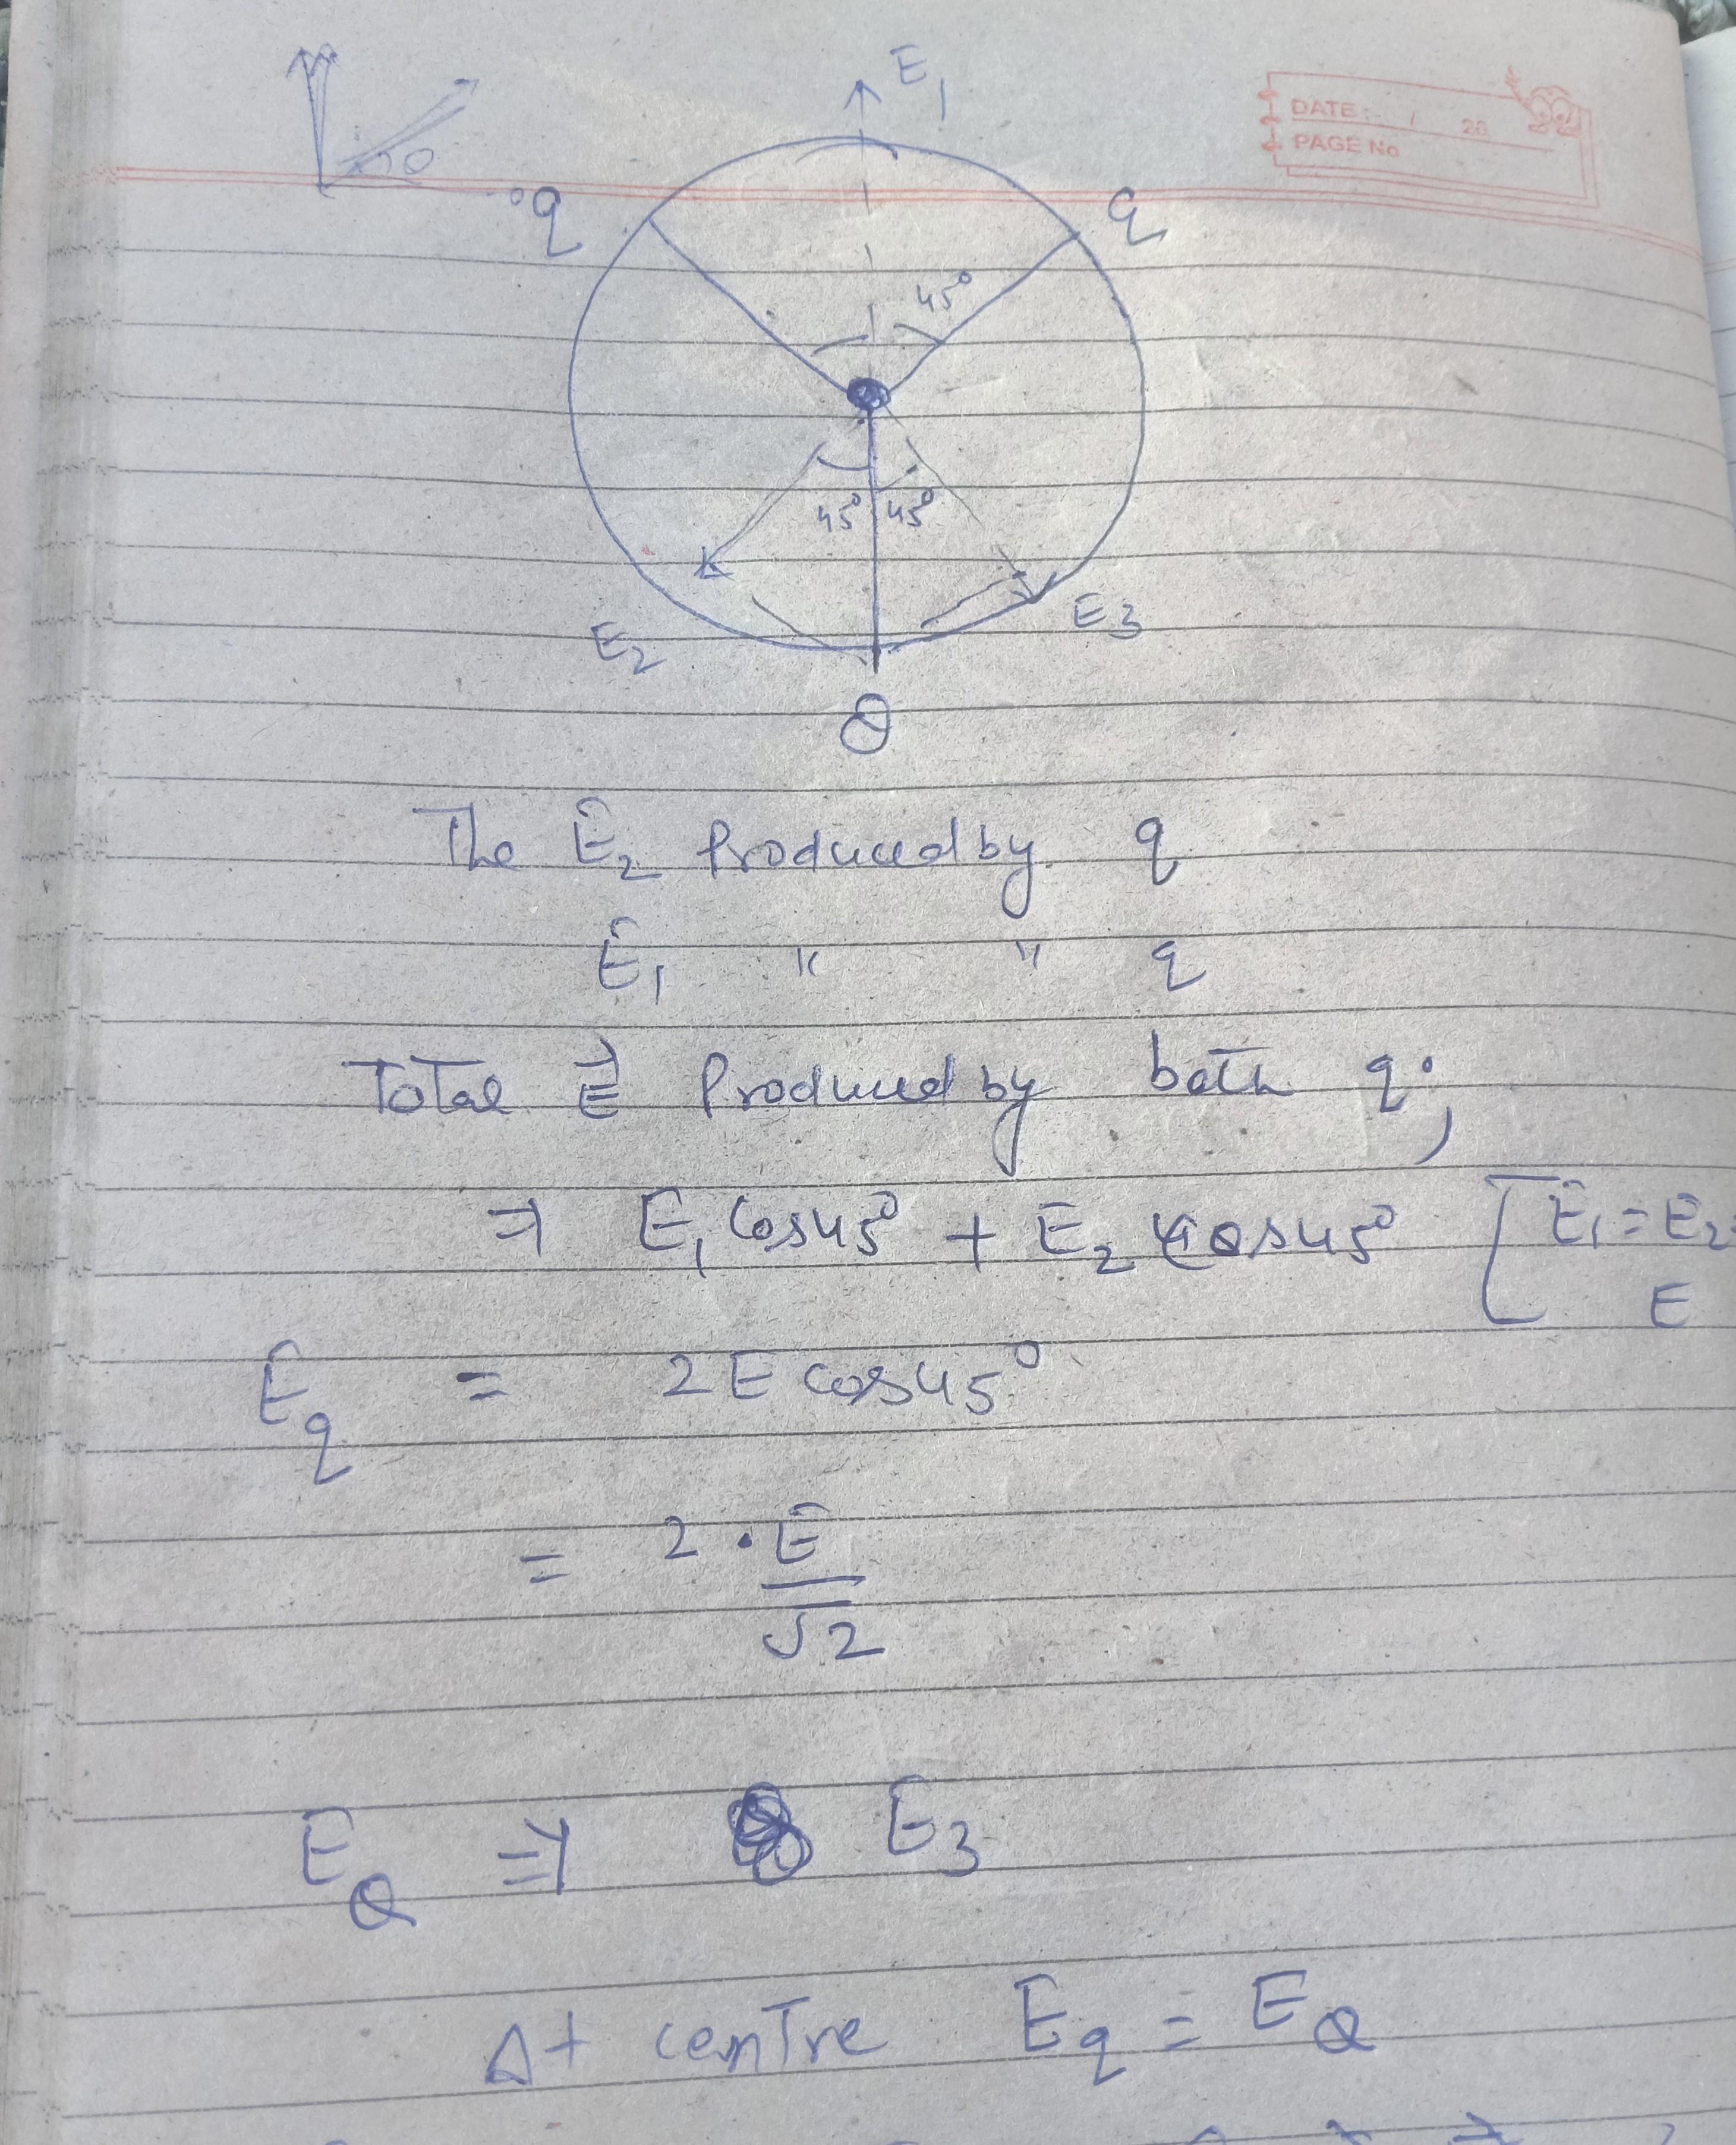 E1
DATE: / 20
PAGE No
θ
q
q
45°
45° 45°
E2
E3
Q
The E2 Produced by q
E1 " " q
Total E⃗ Produced by both q;
⇒ E1 cos45° + E2 cos45° [E1 = E2
E
Eq = 2E cos45°
= 2 · E/√2
EQ ⇒ E3
At centre Eq = EQ